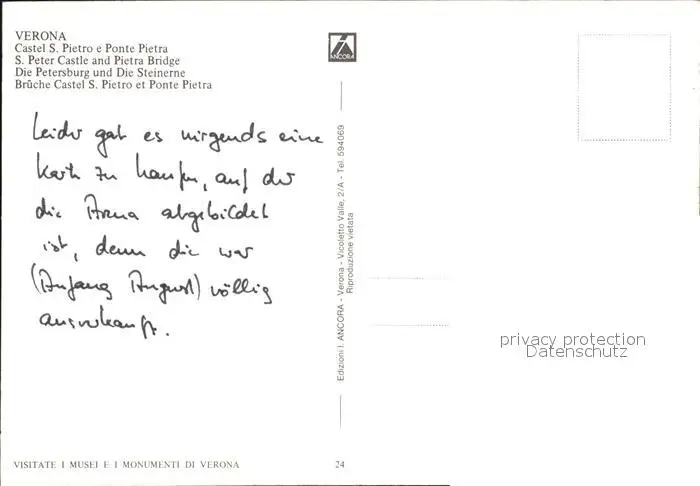 VERONA
Castel S. Pietro e Ponte Pietra
S. Peter Castle and Pietra Bridge
Die Petersburg und Die Steinerne
Brüche Castel S. Pietro et Ponte Pietra
Leider gab es nirgends eine
Karte zu kaufen, auf der
die Arena abgebildet
ist, denn die war
(Anfang August) völlig
ausverkauft.
ANCORA
Edizioni I. ANCORA - Verona - Vicoletto Valle, 2/A - Tel. 594069
Riproduzione vietata
privacy protection
Datenschutz
VISITATE I MUSEI E I MONUMENTI DI VERONA
24